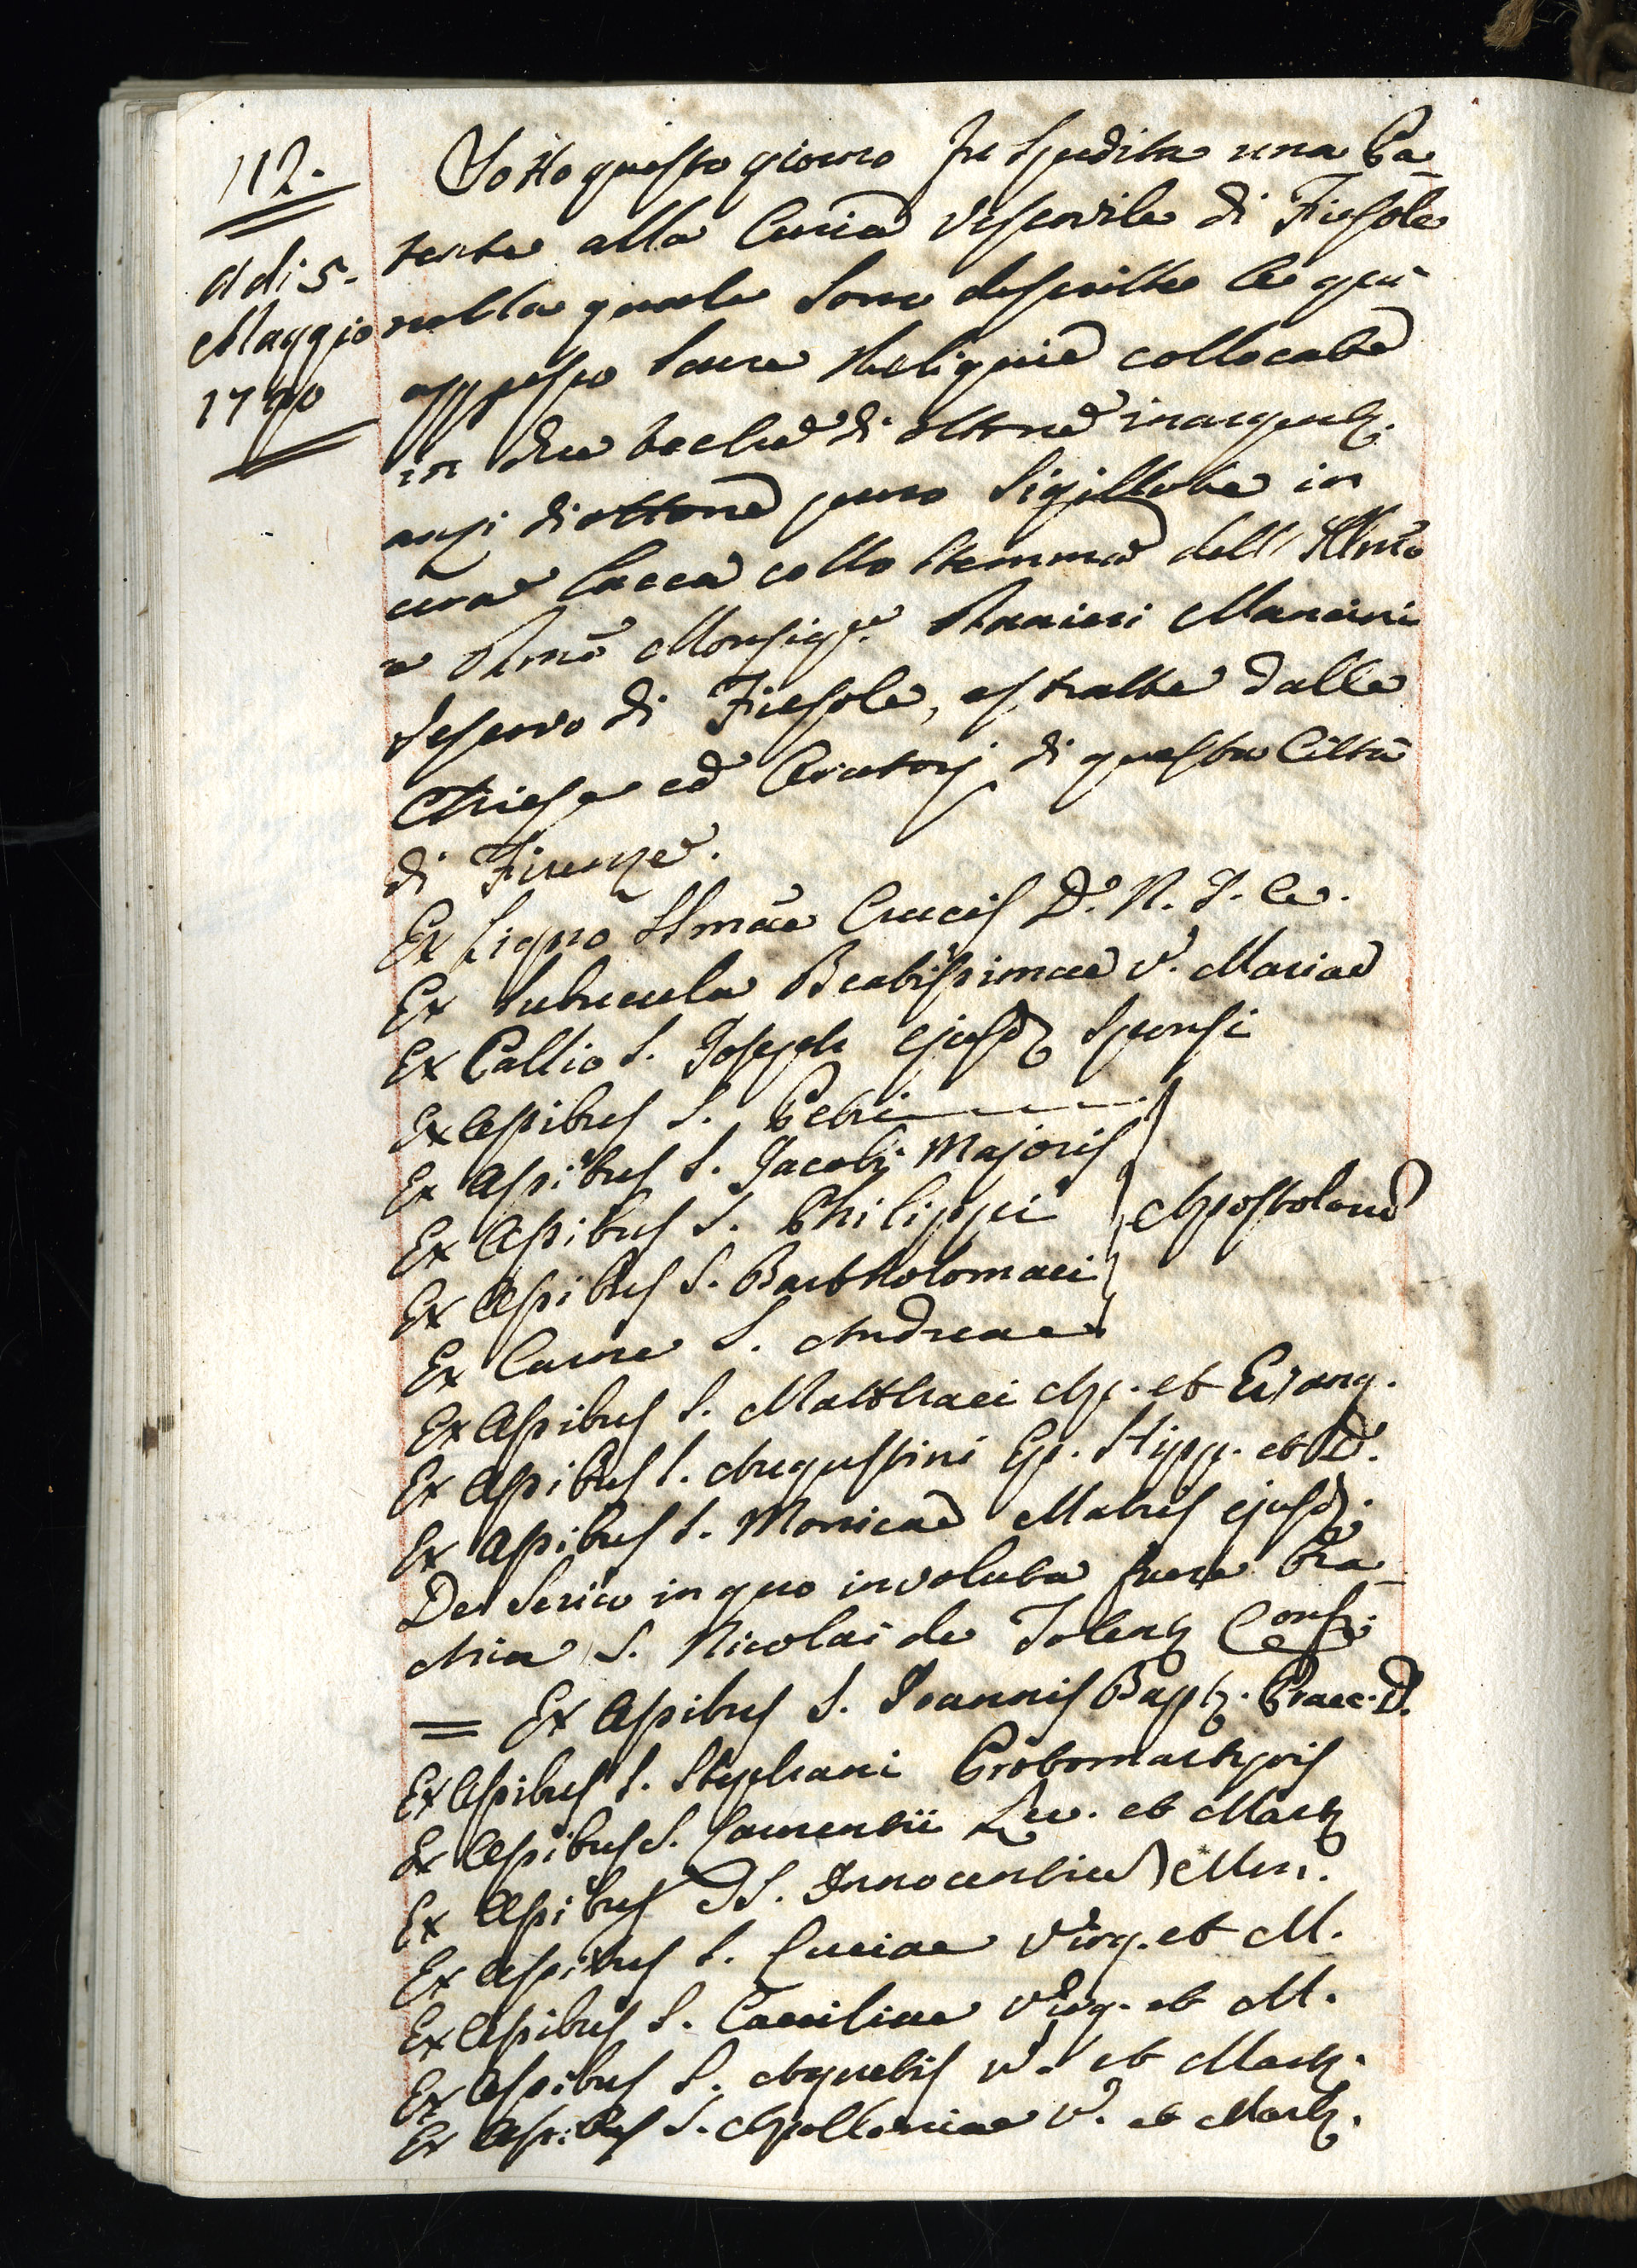 112.
A di 5.
Maggio
1790
Sotto questo giorno fu spedita una Pa-
tente alla Curia Vescovile di Fiesole
nella quale sono descritte le qui
appresso Sacre Reliquie collocate
in due teche di ottone inargent.
anzi di ottone puro sigillate in
cera lacca collo stemma dell' Illmo
e Rmo Monsigr. Ranieri Mancini
Vescovo di Fiesole, estratte dalle
Chiese ed Oratorj di questa Città
di Firenze.
Ex Ligno SSmae Crucis D. N. J. C.
Ex Subucula Beatissimae V. Mariae
Ex Pallio S. Joseph ejusd. Sponsi
Ex Assibus S. Petri
Ex Assibus S. Jacobi Majoris
Ex Assibus S. Philippi
Apostolorum
Ex Assibus S. Bartholomaei
Ex Carne S. Andreae
Ex Assibus S. Matthaei Ap. et Evang.
Ex Assibus S. Augustini Ep. Hipp. et D.
Ex Assibus S. Monicae Matris ejusd.
De Serico in quo involuta fuere bra-
chia S. Nicolai de Tolent. Conf.
= Ex Assibus S. Joannis Bapt. Praec. D.
Ex Assibus S. Stephani Protomartyris
Ex Assibus S. Laurentii Lev. et Mart.
Ex Assibus SS. Innocentium Mm.
Ex Assibus S. Luciae Virg. et M.
Ex Assibus S. Caeciliae Virg. et M.
Ex Assibus S. Agnetis V. et Mart.
Ex Assibus S. Apolloniae V. et Mart.